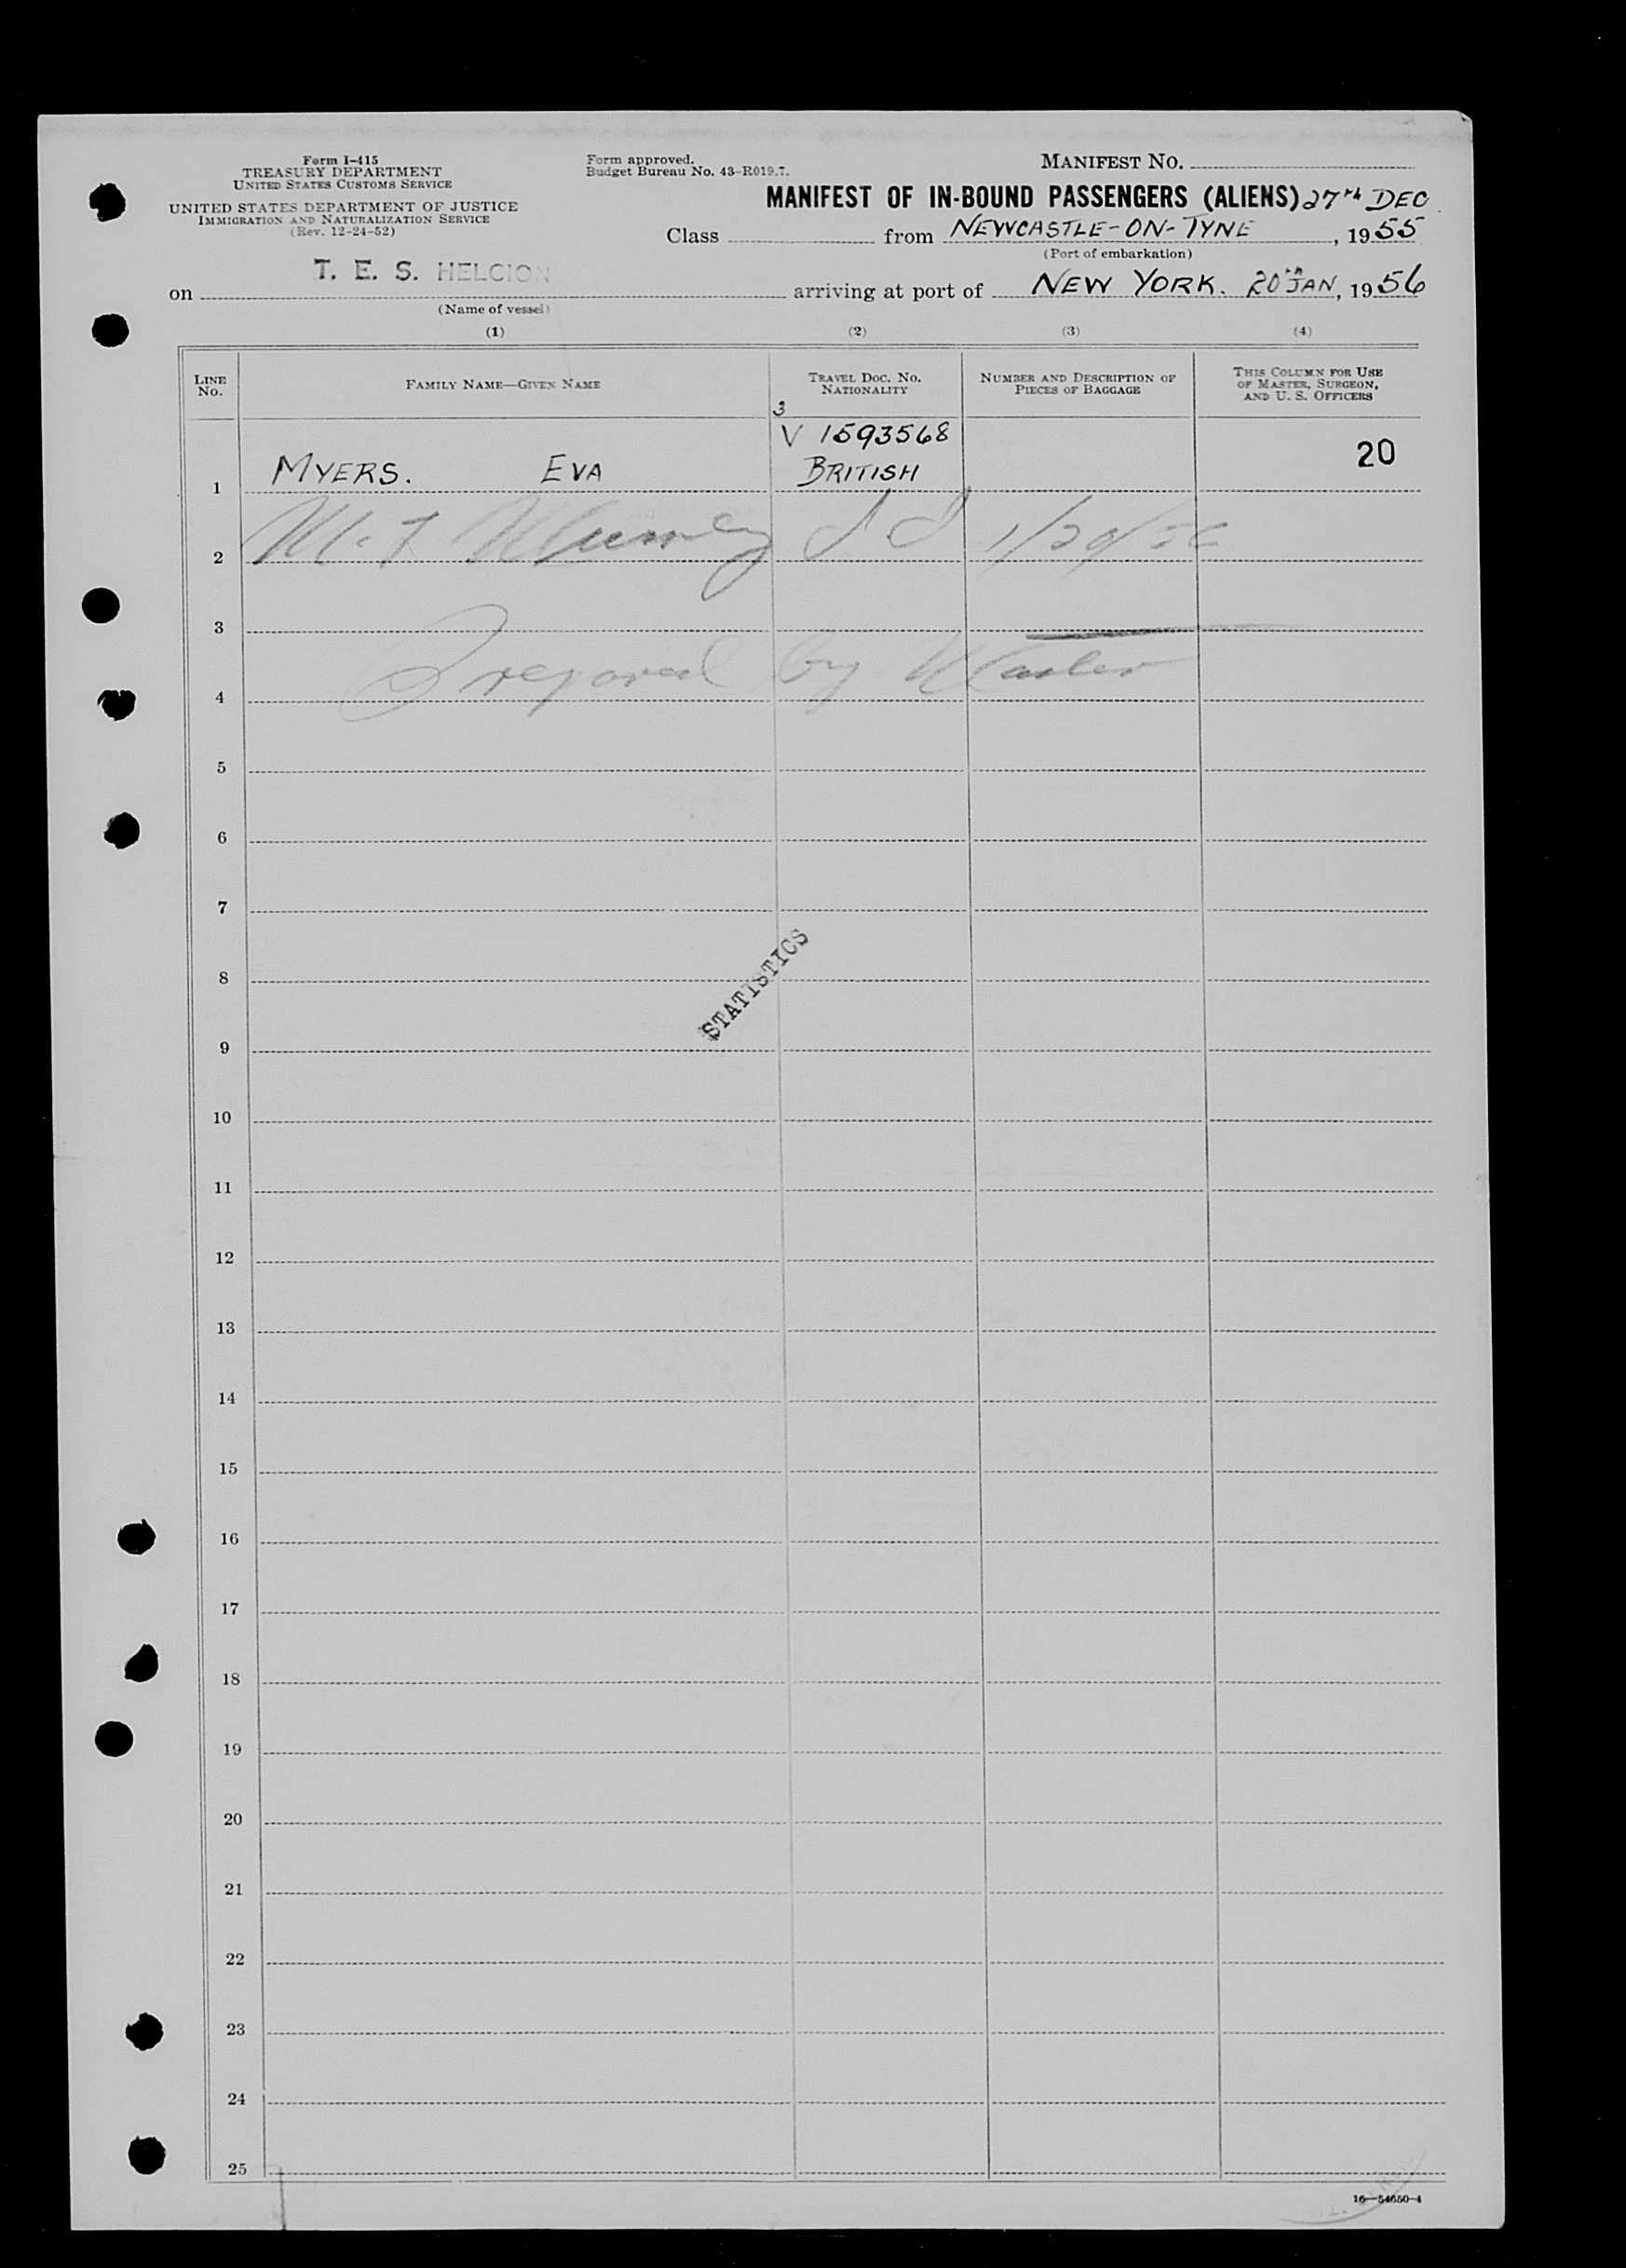 Form I-415
TREASURY DEPARTMENT
UNITED STATES CUSTOMS SERVICE
UNITED STATES DEPARTMENT OF JUSTICE
IMMIGRATION AND NATURALIZATION SERVICE
(Rev. 12-24-52)
Form approved.
Budget Bureau No. 43-R019.7.
MANIFEST NO.
MANIFEST OF IN-BOUND PASSENGERS (ALIENS) 27TH DEC
Class from NEWCASTLE-ON-TYNE, 1955
(Port of embarkation)
on T. E. S. HELCION arriving at port of NEW YORK. 20TH JAN, 1956
(Name of vessel)
(1) (2) (3) (4)
LINE No. FAMILY NAME—GIVEN NAME TRAVEL DOC. NO. NATIONALITY NUMBER AND DESCRIPTION OF PIECES OF BAGGAGE THIS COLUMN FOR USE OF MASTER, SURGEON, AND U. S. OFFICERS
3
V 1593568
1 MYERS. EVA BRITISH 20
2 1/20/56
3
Prepared by Master
4
5
6
7
STATISTICS
8
9
10
11
12
13
14
15
16
17
18
19
20
21
22
23
24
25
16—54650-4